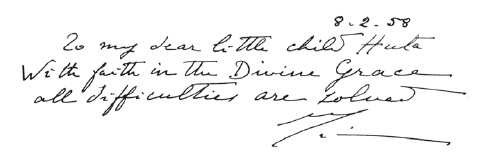 8-2-58
To my dear little child Huta
With faith in the Divine Grace
all difficulties are solved